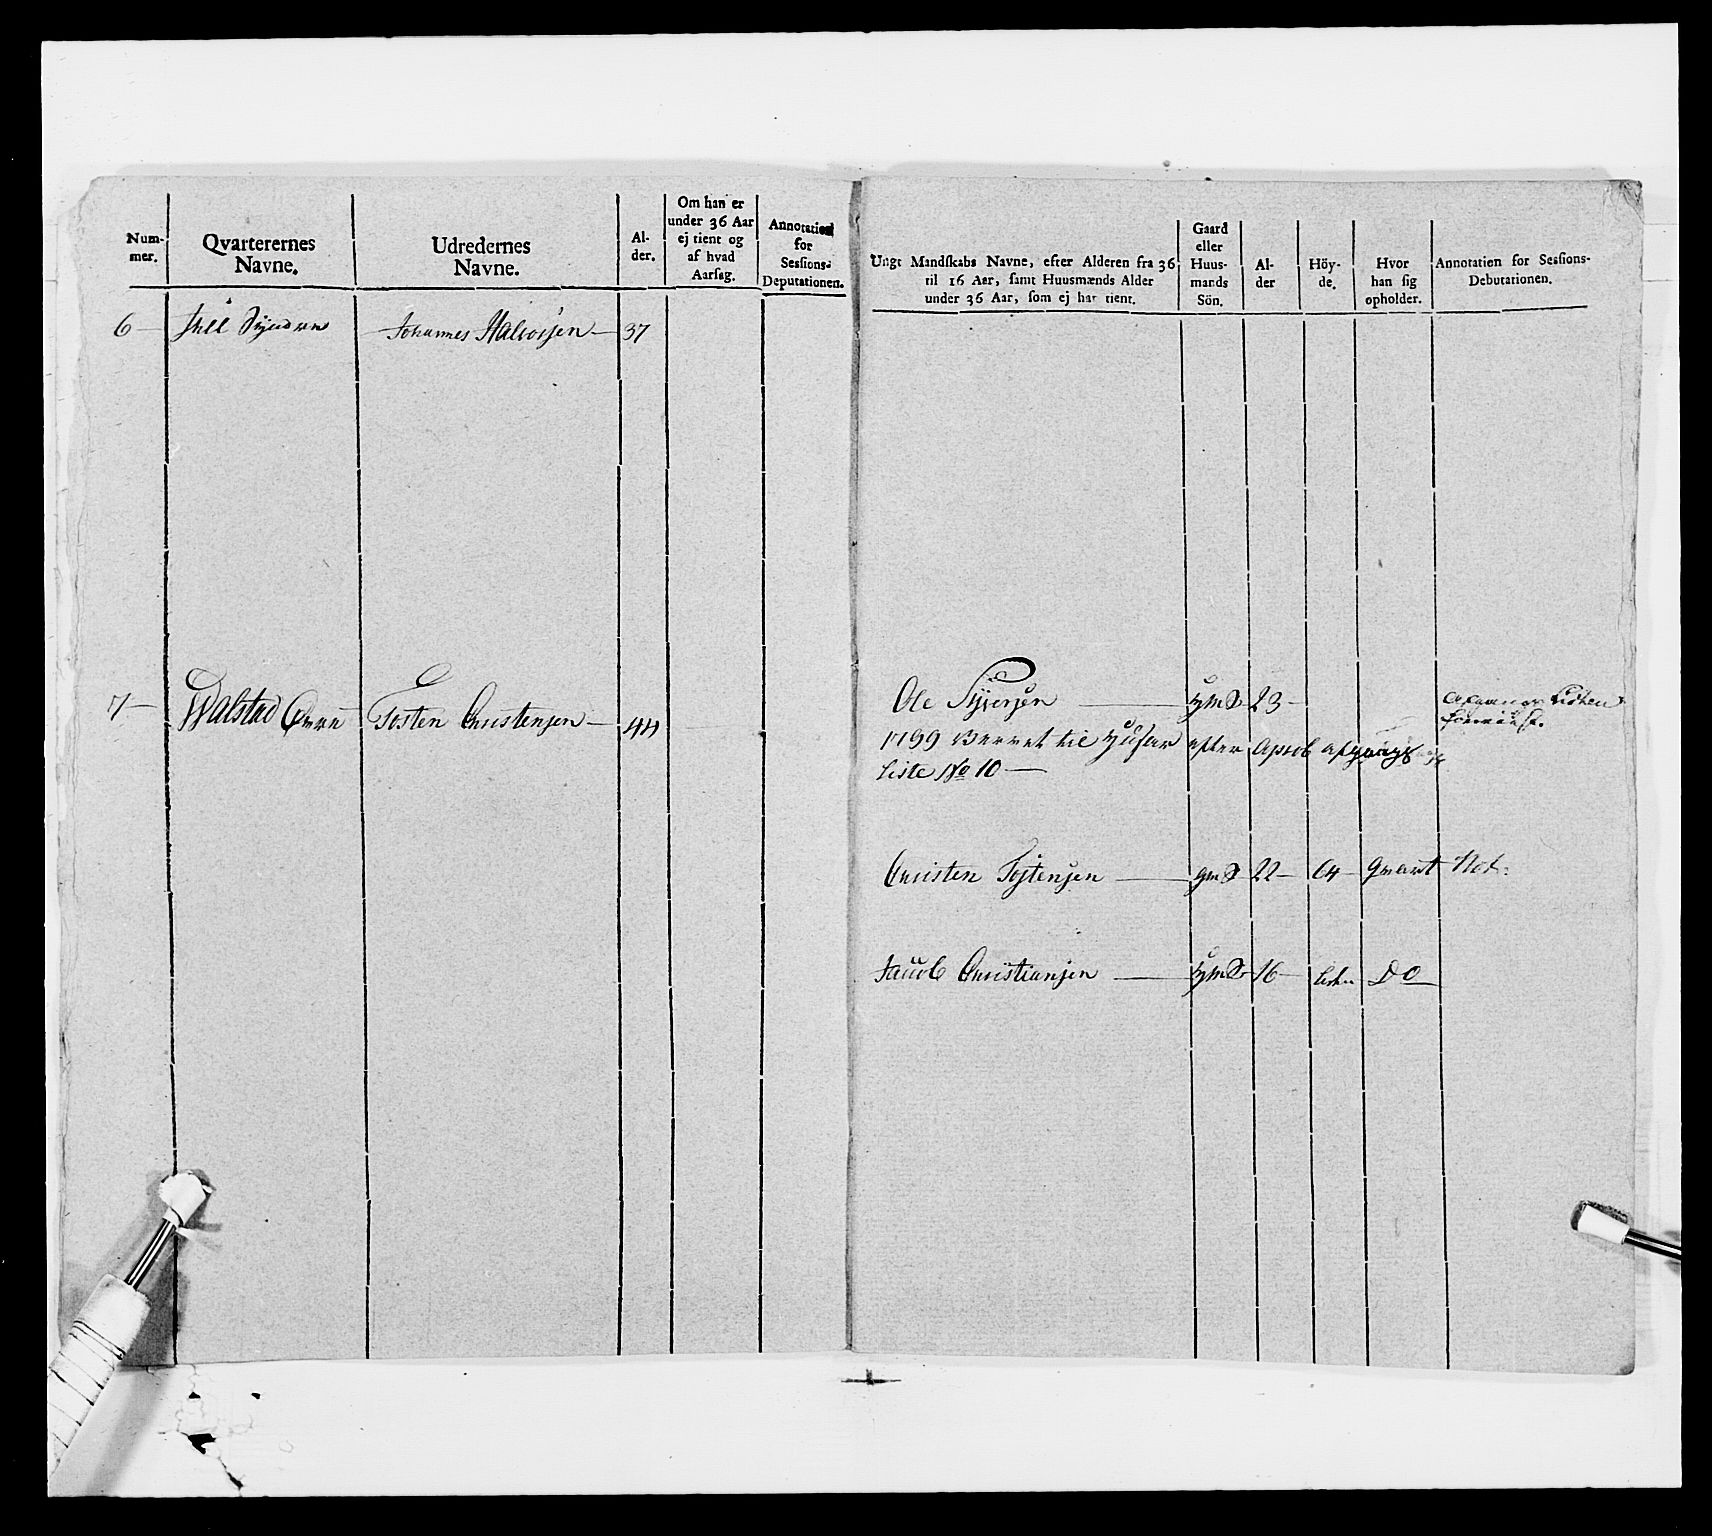 Num-
mer.
Qvarterernes
Navne.
Udredernes
Navne.
Al-
der.
Om han er
under 36 Aar
ej tient og
af hvad
Aarsag.
Annotation
for
Sessions-
Deputationen.
6 — Johannes Halvorsen — 37
7 — Walstad Øvre Tosten Christensen — 44
Ungt Mandskabs Navne, efter Alderen fra 36
til 16 Aar, samt Huusmænds Alder
under 36 Aar, som ej har tient.
Gaard
eller
Huus-
mands
Sön.
Al-
der
Höy-
de.
Hvor
han sig
opholder.
Annotatien for Sessions-
Debutationen.
Ole Syversen — hmS 23 —
1799 til efter Aprob afgangs
Liste No 10 —
Christen Tostensen — gmS 22 — 64 Qvart Not.
Jacob Christiansen — hmS 16 — Do